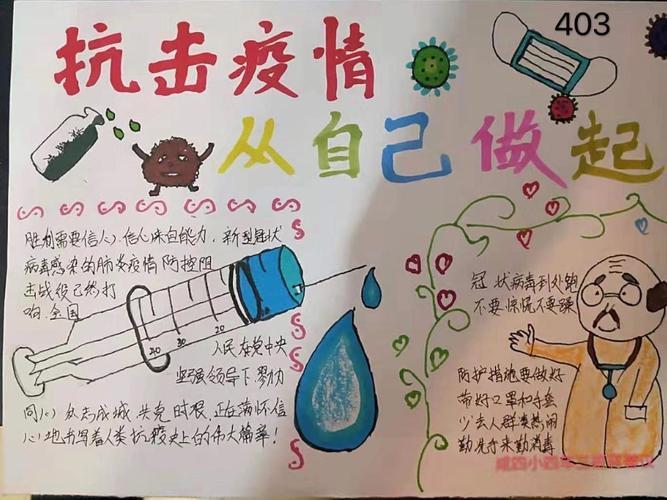 403
抗击疫情
从自己做起
胜利需要信心,信心来自能力,新型冠状
病毒感染的肺炎疫情防控阻
击战役已然打
响.全国
20
30
40
人民在党中央
坚强领导下勠力
同心 众志成城 共克时艰,正在满怀信
心地书写着人类抗疫史上的伟大篇章!
冠状病毒到处跑
不要惊慌不要躁
防护措施要做好
带好口罩和手套
少去人群凑热闹
勤洗手来勤消毒
咸四小四